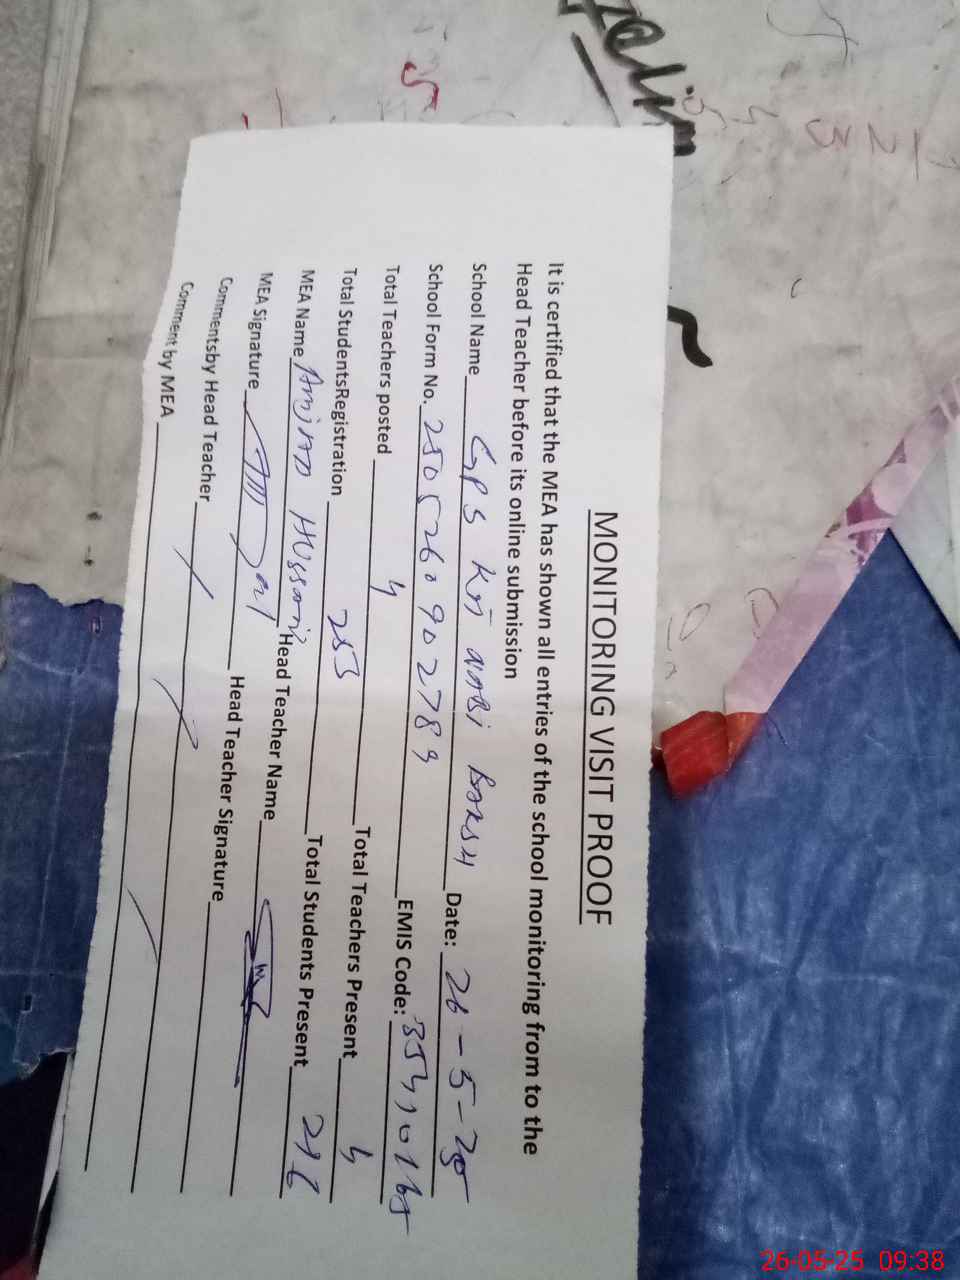 MONITORING VISIT PROOF
It is certified that the MEA has shown all entries of the school monitoring from to the
Head Teacher before its online submission
School Name GPS Kot NABi BAKSH Date: 26-5-25
School Form No. 2505260902789 EMIS Code:
Total Teachers posted 4 Total Teachers Present 4
Total StudentsRegistration 253 Total Students Present 216
MEA Name AmjAD Hussain Head Teacher Name
MEA Signature Head Teacher Signature
Commentsby Head Teacher
Comment by MEA
26-05-25 09:38